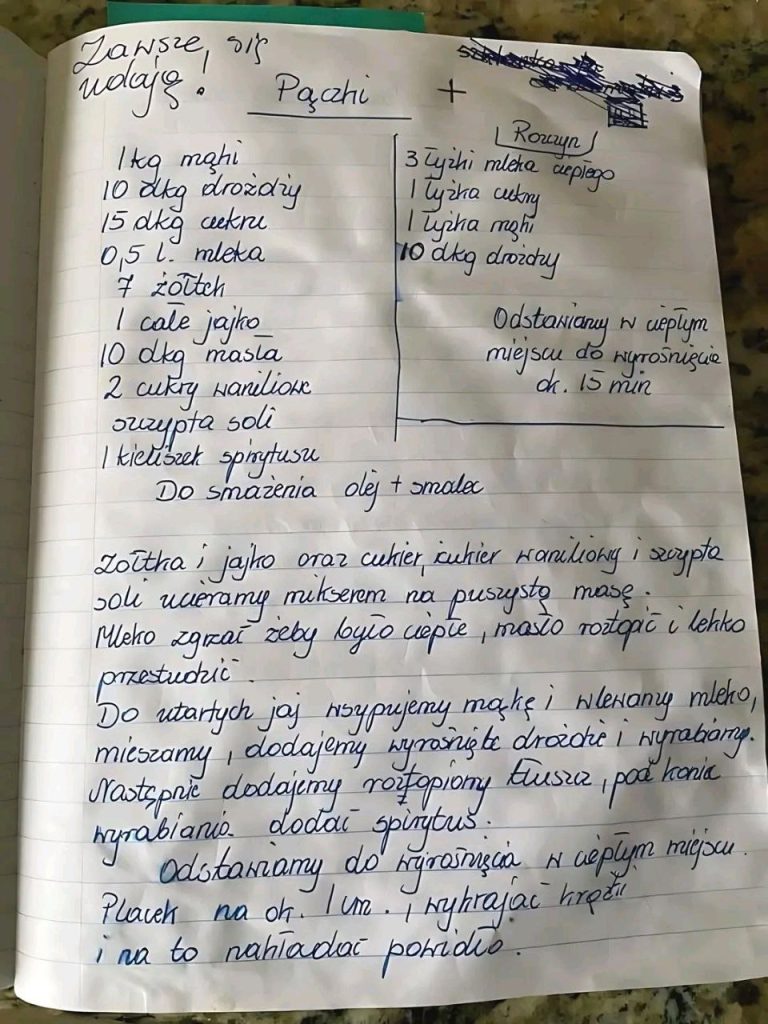 Zawsze się
udają!
Pączki +
1 kg mąki
10 dkg drożdży
15 dkg cukru
0,5 l. mleka
7 żółtek
1 całe jajko
10 dkg masła
2 cukry waniliowe
szczypta soli
1 kieliszek spirytusu
Do smażenia olej + smalec
Rozczyn
3 łyżki mleka ciepłego
1 łyżka cukru
1 łyżka mąki
10 dkg drożdży
Odstawiamy w ciepłym
miejscu do wyrośnięcia
ok. 15 min
Żółtka i jajko oraz cukier, cukier waniliowy i szczypta
soli ucieramy mikserem na puszystą masę.
Mleko zgrzać żeby było ciepłe, masło roztopić i lekko
przestudzić.
Do utartych jaj wsypujemy mąkę i wlewamy mleko,
mieszamy, dodajemy wyrośnięte drożdże i wyrabiamy.
Następnie dodajemy roztopiony tłuszcz, pod koniec
wyrabiania dodać spirytus.
Odstawiamy do wyrośnięcia w ciepłym miejscu.
Placek na ok. 1 cm., wykrajać krążki
i na to nakładać powidło.